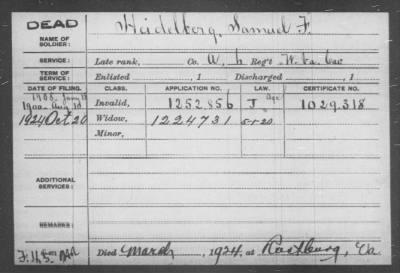 DEAD
NAME OF SOLDIER: Heidelberg, Samuel F.
SERVICE: Late rank, Co. Reg't W. Va. Cav
TERM OF SERVICE: Enlisted , 1 Discharged , 1
DATE OF FILING. CLASS. APPLICATION NO. LAW. CERTIFICATE NO.
1908
1900 Aug 10 Invalid, 1252,856 J Age 1029.318
1924 Oct 20 Widow, 1224731 5-1-20
Minor,
ADDITIONAL SERVICES:
REMARKS:
Died March , 1924, at Rustburg, Va.